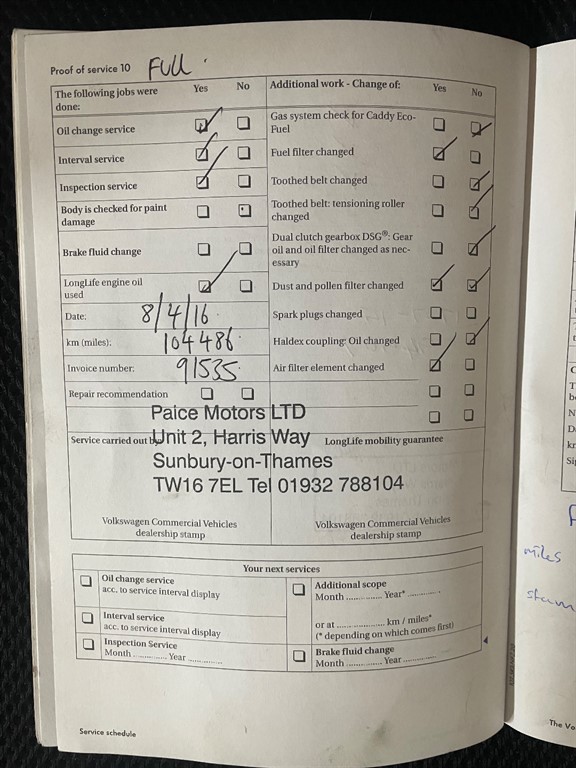 Proof of service 10 FULL
The following jobs were done: Yes No
Additional work - Change of: Yes No
Oil change service
Gas system check for Caddy Eco-
Fuel
Interval service
Fuel filter changed
Inspection service
Toothed belt changed
Body is checked for paint
damage
Toothed belt: tensioning roller
changed
Brake fluid change
Dual clutch gearbox DSG®: Gear
oil and oil filter changed as nec-
essary
LongLife engine oil
used
Dust and pollen filter changed
Date: 8/4/16
Spark plugs changed
km (miles): 104486
Haldex coupling: Oil changed
Invoice number: 91535
Air filter element changed
Repair recommendation
Paice Motors LTD
Unit 2, Harris Way
Sunbury-on-Thames
TW16 7EL Tel 01932 788104
Service carried out by
LongLife mobility guarantee
Volkswagen Commercial Vehicles
dealership stamp
Volkswagen Commercial Vehicles
dealership stamp
Your next services
Oil change service
acc. to service interval display
Interval service
acc. to service interval display
Inspection Service
Month .............. Year ..............
Additional scope
Month .............. Year* ..............
or at .................... km / miles*
(* depending on which comes first)
Brake fluid change
Month .............. Year ..............
Service schedule
miles
The Vo